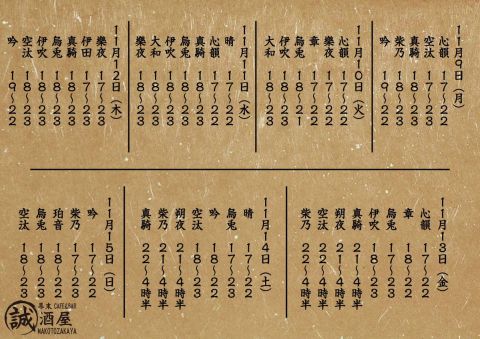 11月9日(月)
心韻 17〜22
空汰 17〜23
真騎 18〜22
柴乃 18〜22
吟 19〜22
11月10日(火)
心韻 17〜22
樂夜 17〜23
章 17〜22
烏兎 18〜21
伊吹 18〜23
大和 18〜23
11月11日(水)
晴 17〜22
心韻 17〜22
真騎 18〜22
烏兎 18〜23
伊吹 18〜23
大和 18〜23
樂夜 18〜23
11月12日(木)
樂夜 17〜23
伊田 17〜22
真騎 18〜23
烏兎 18〜23
伊吹 18〜23
空汰 18〜23
吟 19〜22
11月13日(金)
心韻 17〜22
章 17〜22
烏兎 17〜23
伊吹 18〜23
真騎 21〜4時半
朔夜 22〜4時半
空汰 22〜4時半
柴乃 22〜4時半
11月14日(土)
晴 17〜22
烏兎 17〜23
吟 18〜22
空汰 18〜23
朔夜 21〜4時半
柴乃 21〜4時半
真騎 22〜4時半
11月15日(日)
吟 17〜22
柴乃 17〜23
珀音 18〜22
烏兎 18〜23
空汰 18〜23
幕末 CAFE&BAR
誠酒屋
MAKOTOZAKAYA